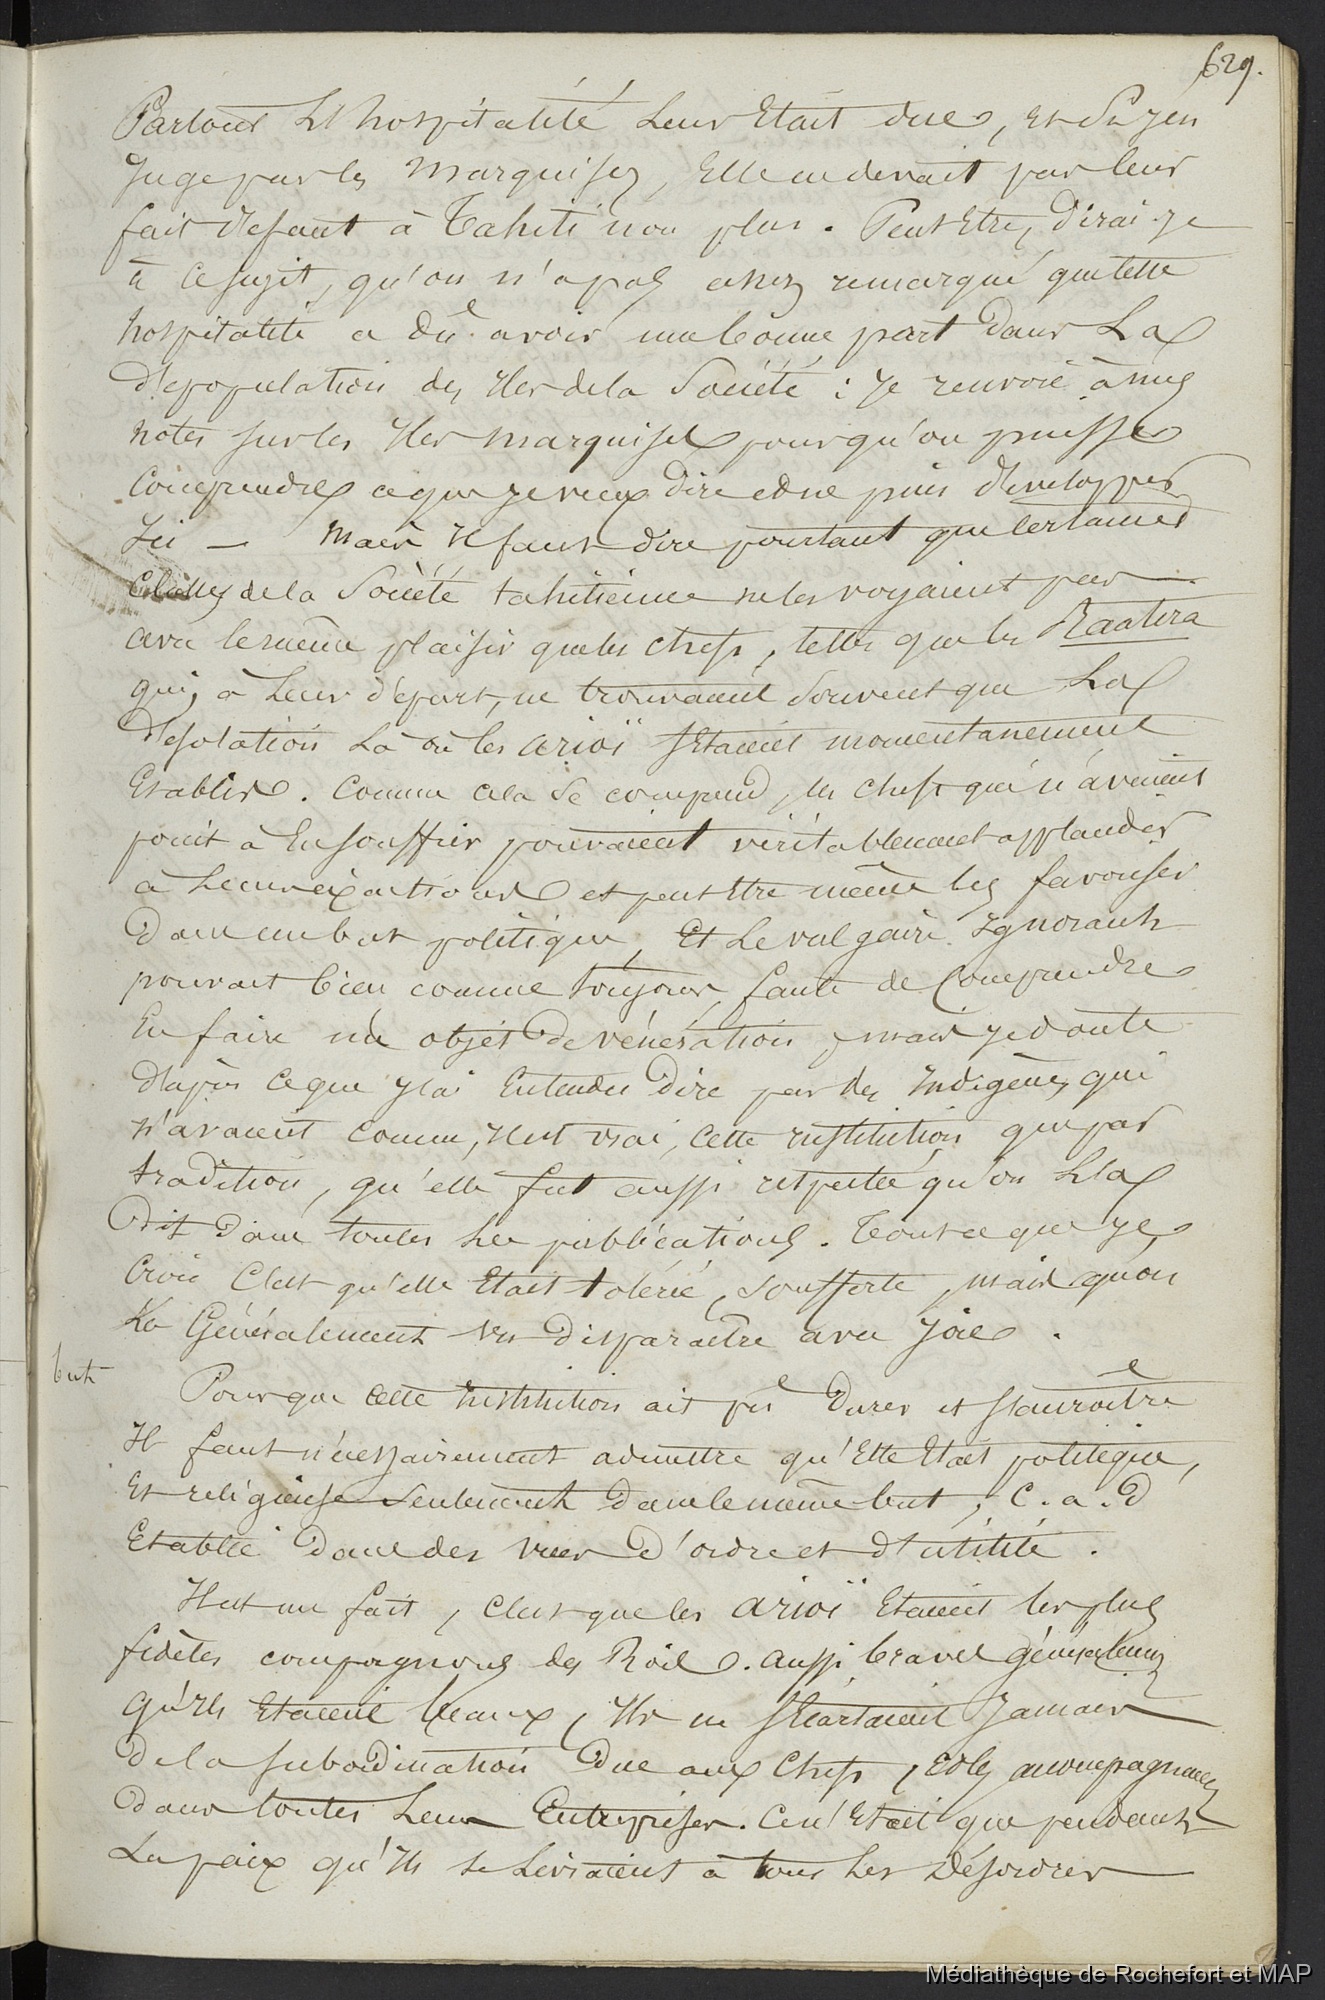 629.
Partout l'hospitalité leur était due, et si j'en
juge par les marquises, elle ne devait pas leur
fait defaut à Tahiti non plus. Peut être, dirai-je
à ce sujet, qu'on n'a pas assez remarqué que cette
hospitalité a dû avoir une bonne part dans la
dépopulation des îles de la Société : je renvoie à mes
notes sur les îles marquises pour qu'on puisse
comprendre ce que je veux dire et ne puis développer
ici — mais il faut dire pourtant que certaines
classes de la Société tahitienne ne les voyaient pas
avec le même plaisir que les chefs, telles que les Raatira
qui, à leur départ, ne trouvaient souvent que la
désolation là où les arioï s'étaient momentanement
établis. Comme cela se comprend, les chefs qui n'avaient
point à en souffrir pouvaient véritablement applaudir
à leurs exactions et peut être même les favoriser
dans un but politique, et le vulgaire ignorant
pouvait bien comme toujours, faute de comprendre
en faire un objet de vénération, mais je doute
d'après ce que j'ai entendu dire par des indigènes qui
n'avaient connu, il est vrai, cette institution que par
tradition, qu'elle fut aussi respectée qu'on l'a
dit dans toutes les publications. Tout ce que je
crois c'est qu'elle était tolérée, soufferte, mais qu'on
l'a généralement vu disparaître avec joie.
but
Pour que cette institution ait pû durer et s'accroître
il faut nécessairement admettre qu'elle était politique,
et religieuse seulement dans le même but, c. a. d
établie dans des vues d'ordre et d'utilité.
Il est un fait, c'est que les arioï étaient les plus
fidèles compagnons des Rois. aussi braves généralement
qu'ils étaient beaux, ils ne s'écartaient jamais
de la subordination due aux chefs, et les accompagnaient
dans toutes leurs entreprises. Ce n'était que pendant
la paix qu'ils se livraient à tous les désordres
Médiathèque de Rochefort et MAP